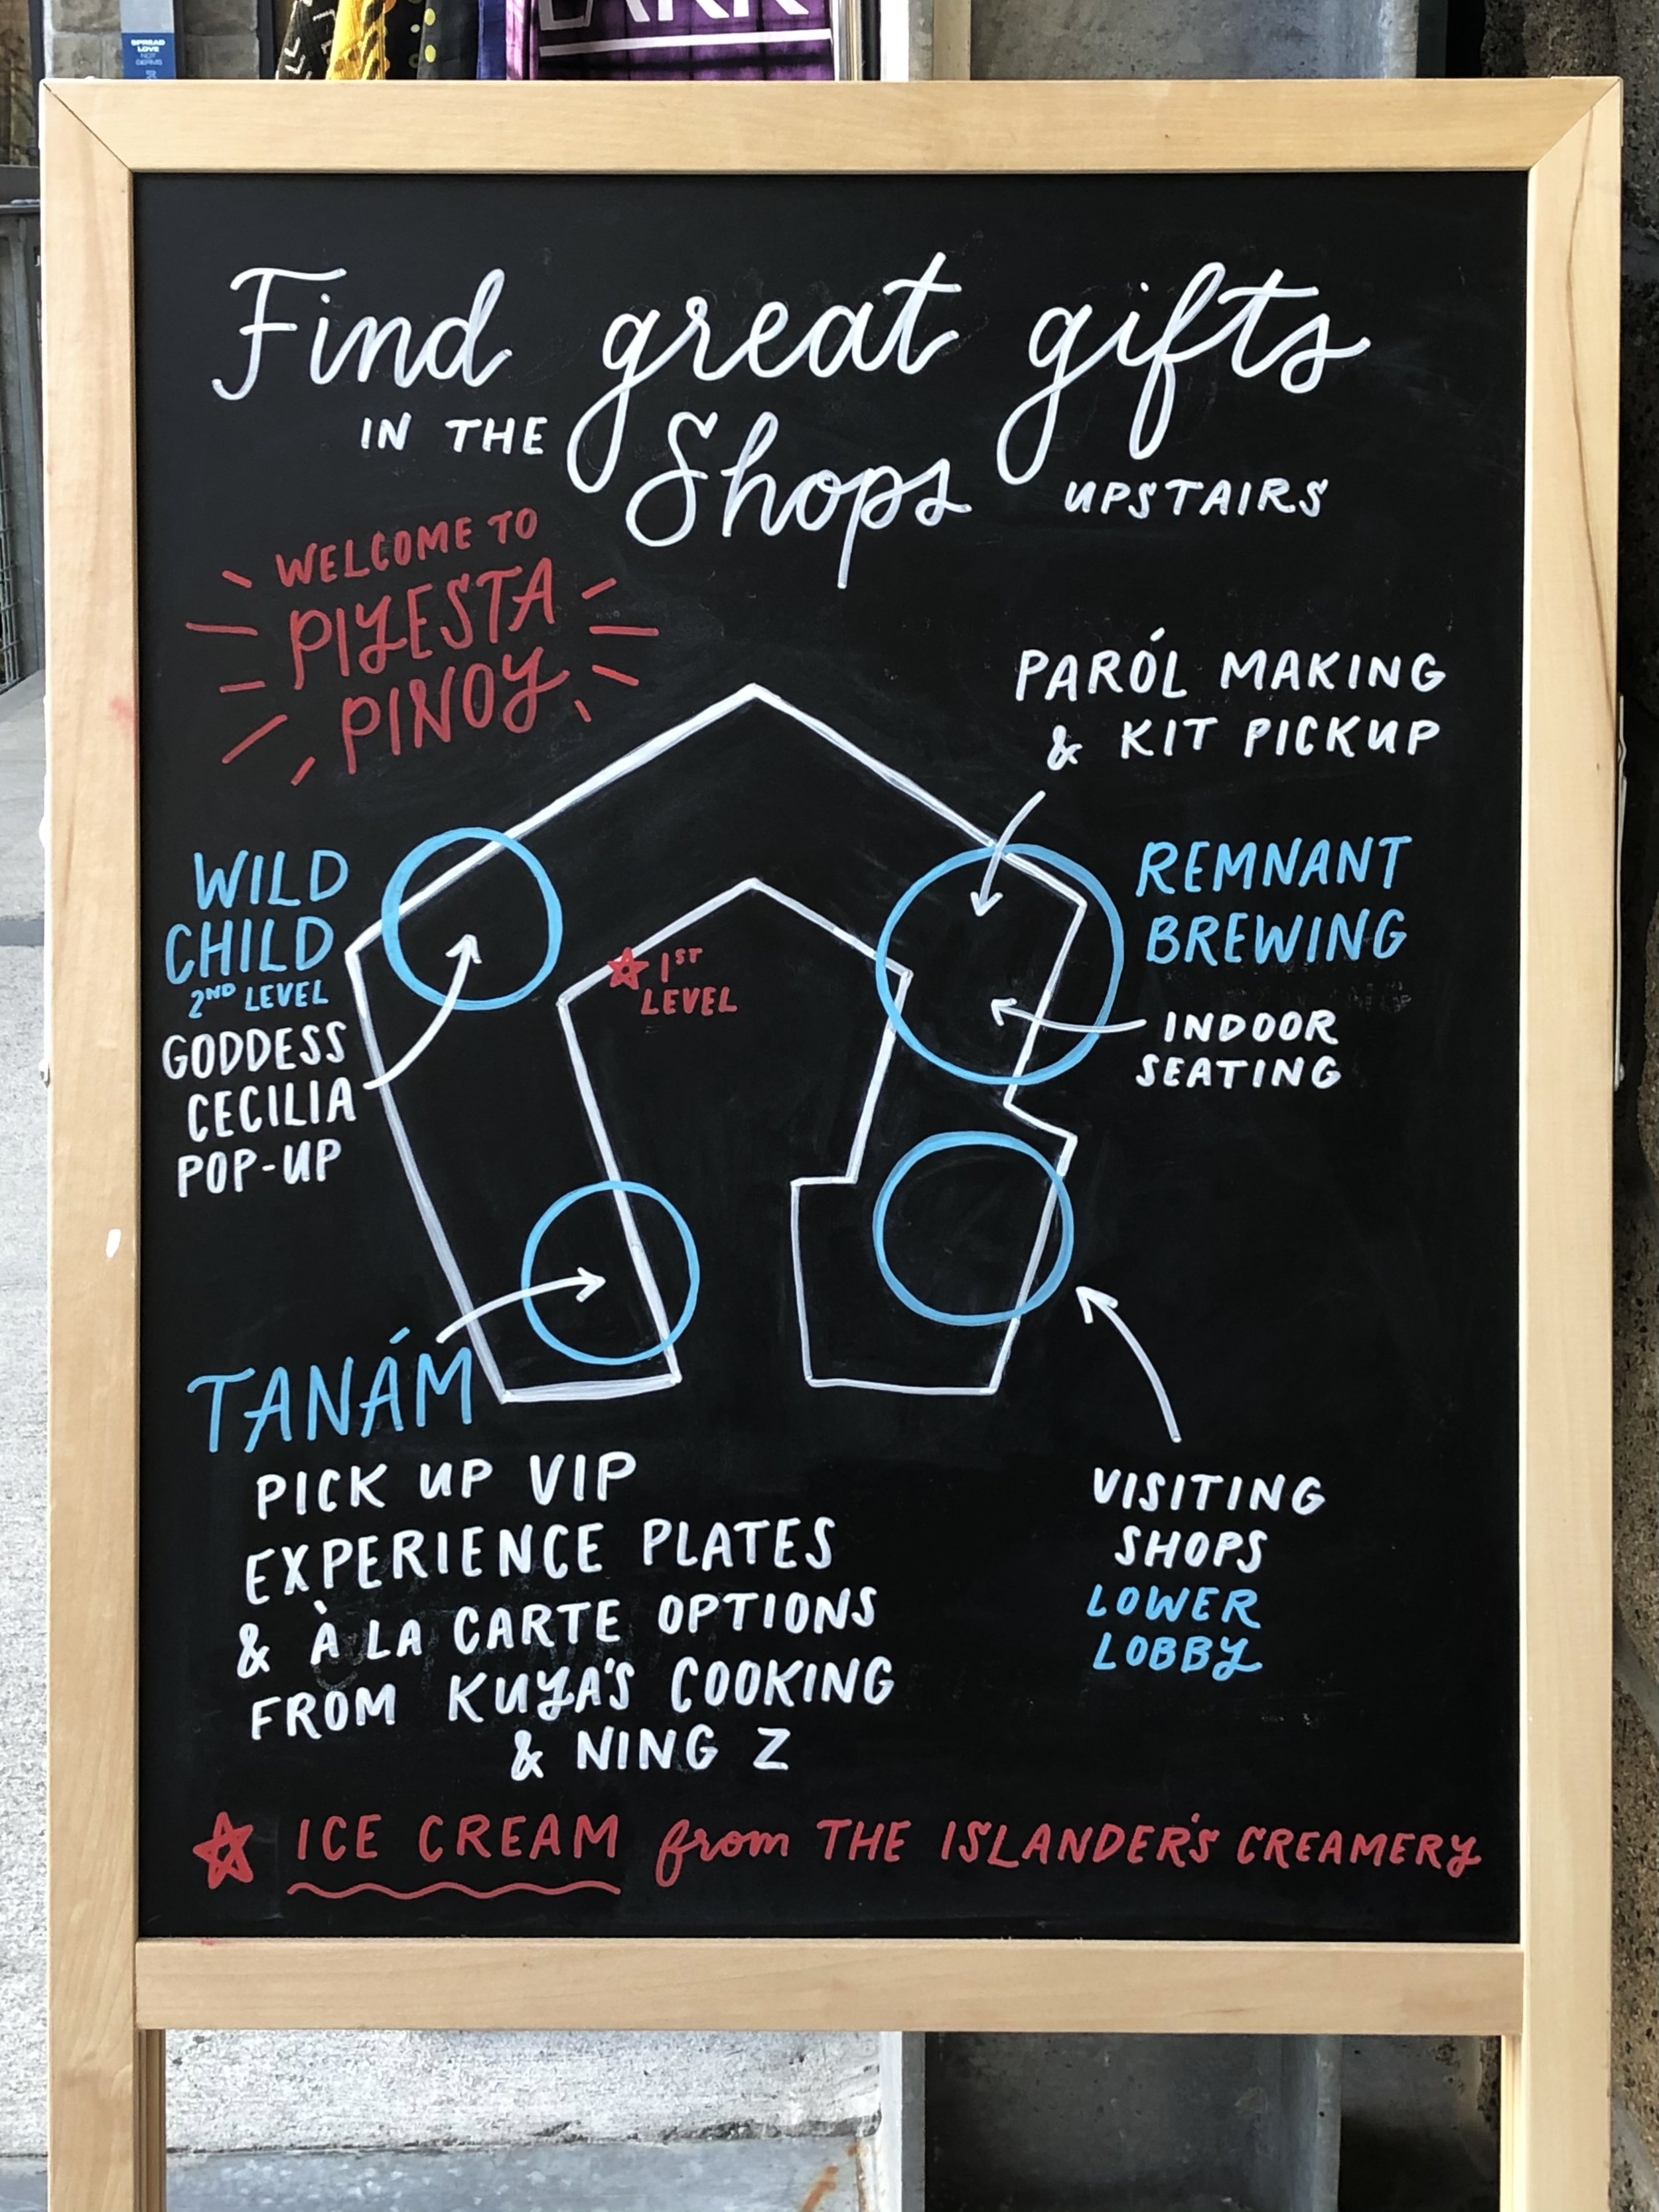 SPREAD
LOVE
NOT
GERMS
Find great gifts
IN THE Shops UPSTAIRS
WELCOME TO
PIYESTA
PINOY
PARÓL MAKING
& KIT PICKUP
WILD
CHILD
2ND LEVEL
GODDESS
CECILIA
POP-UP
1ST
LEVEL
REMNANT
BREWING
INDOOR
SEATING
TANÁM
PICK UP VIP
EXPERIENCE PLATES
& À LA CARTE OPTIONS
FROM KUYA'S COOKING
& NING Z
VISITING
SHOPS
LOWER
LOBBY
ICE CREAM from THE ISLANDER'S CREAMERY